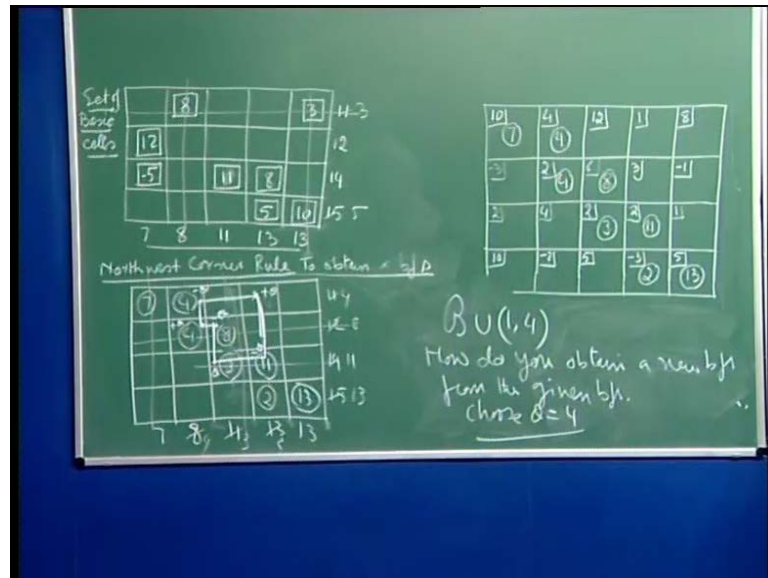 Set of
Basic
cells
8 3 11 3
12 12
-5 11 8 14
5 10 15 5
7 8 11 13 13
Northwest Corner Rule To obtain a bfs
7 4 -θ +θ 11 4
+θ 4 8 12 8
3 11 14 11
2 13 15 13
7 8 11 3 13 13
10 7 4 4 12 1 8
-3 2 4 6 8 3 -1
2 4 2 3 2 11 1
10 -2 5 -3 2 5 13
B ∪ (1,4)
How do you obtain a new bfs
from the given bfs.
choose θ = 4